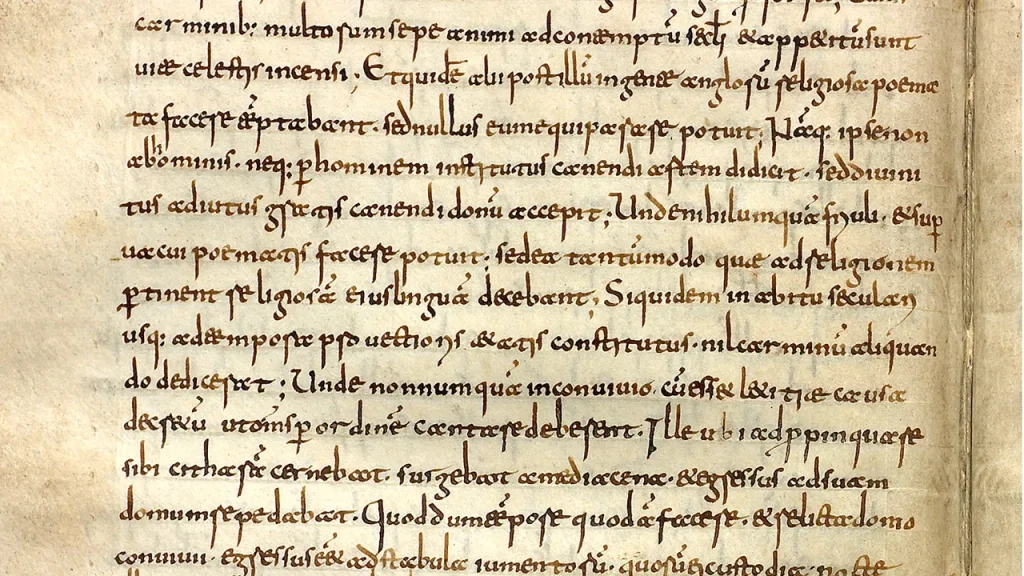 carminib; multorum sepe animi ad contemptū sc̄li & appetitu sunt
uitæ celestis incensi; Et quidē alii post illū in gente anglorū religiosa poema
ta facere tēptabant· sed nullus eum equiparare potuit· Nāq; ipse non
ab hominis· neq; p̄ hominem institutus canendi artem didicit· sed diuini
tus adiutus gratis canendi donū accepit; Unde nihil umquā friuoli· & sup̄
uacui poematis facere potuit; sed ea tantūmodo quæ ad religionem
p̄tinent religiosā eius linguā decebant; Siquidem in abitu seculari
usq; ad tempora prouectioris ætatis constitutus· nil carminū aliquan
do dedicerat; Unde nonnumquā in conuiuio· cū ess& l&itiæ causa
decretū ut om̄s p̄ ordinē cantare deberent· Ille ubi adp̄pinquare
sibi citharā cernebat· surgebat a media cena· & egressus ad suam
domum repedabat· Quod dum tēpore quodā facere· & relicta domo
conuiuii· egressus ēē& ad stabula iumentorū· quorū ei custodia nocte